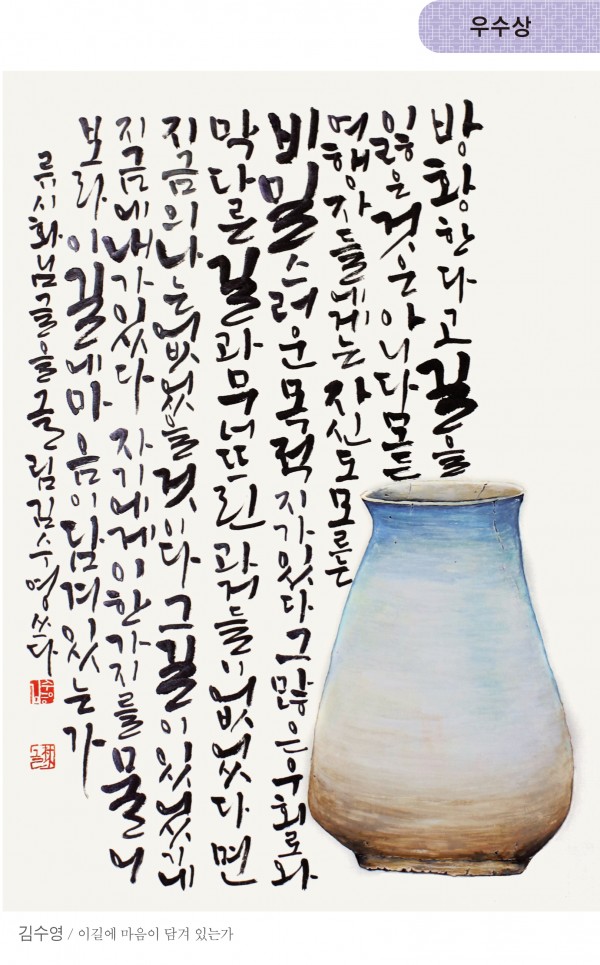 우수상
방황한다고길을
잃은것은아니다모든
여행자들에게는자신도모르는
비밀스러운목적지가있다그많은우회로와
막다른길과무너뜨린과거들이없었다면
지금의나는없었을것이다그길이있었기에
지금에내가있다 자기에게이한가지를물어
보라이길에마음이담겨있는가
류시화님글을글림김수영쓰다
김수영 / 이길에 마음이 담겨 있는가